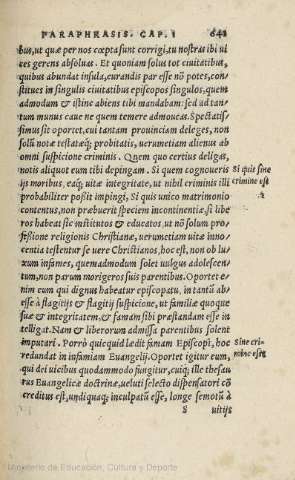 PARAPHRASIS. CAP. I 641
bus, ut quæ per nos cœpta sunt corrigi, tu nostras ibi ui
ces gerens absoluas. Et quoniam solus tot ciuitatibus,
quibus abundat insula, curandis par esse nō potes, con-
stitues in singulis ciuitatibus episcopos singulos, quem
admodum & istinc abiens tibi mandabam: sed ad tan-
tum munus caue ne quem temere admoueas. Spectatis
simus sit oportet, cui tantam prouinciam deleges, non
solũ notæ testatæq; probitatis, uerumetiam alienus ab
omni suspicione criminis. Quem quo certius deligas,
notis aliquot eum tibi depingam. Si quem cognoueris
ijs moribus, eaq; uitæ integritate, ut nihil criminis illi
probabiliter possit impingi, Si quis unico matrimonio
contentus, non præbuerit speciem incontinentiæ: si libe
ros habeat sic institutos & educatos, ut nō solum pro-
fessione religionis Christianæ, uerumetiam uitæ inno-
centia testentur se uere Christianos, hoc est, non ob lu
xum infames, quemadmodum solet uulgus adolescen-
tum, non parum morigeros suis parentibus. Oportet e-
nim eum qui dignus habeatur episcopatu, in tantũ ab-
esse à flagitijs & flagitij suspicione, ut familiæ quoque
suæ & integritatem, & famam sibi præstandam esse in
telligat. Nam & liberorum admissa parentibus solent
imputari. Porrò quicquid lædit famam Episcopi, hoc
redundat in infamiam Euangelij. Oportet igitur eum,
qui dei uicibus quodammodo fungitur, cuiq; ille thesau
rus Euangelicæ doctrinæ, ueluti selecto dispensatori cō
creditus est, undiquaq; inculpatũ esse, longe semotũ à
S uitijs
Si quis sine
crimine est
Sine cri-
mine esse
Ministerio de Educación, Cultura y Deporte